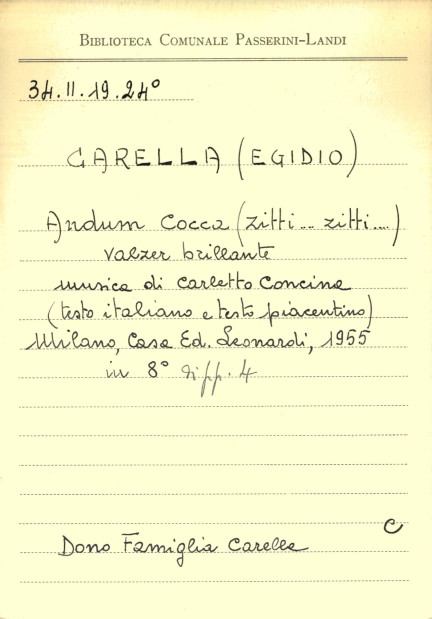 BIBLIOTECA COMUNALE PASSERINI-LANDI
34.II.19.24°
CARELLA (EGIDIO)
Andum Cocca (zitti... zitti....)
valzer brillante
musica di Carletto Concina
(testo italiano e testo piacentino)
Milano, Casa Ed. Leonardi, 1955
in 8° pp. 4
C
Dono Famiglia Carella